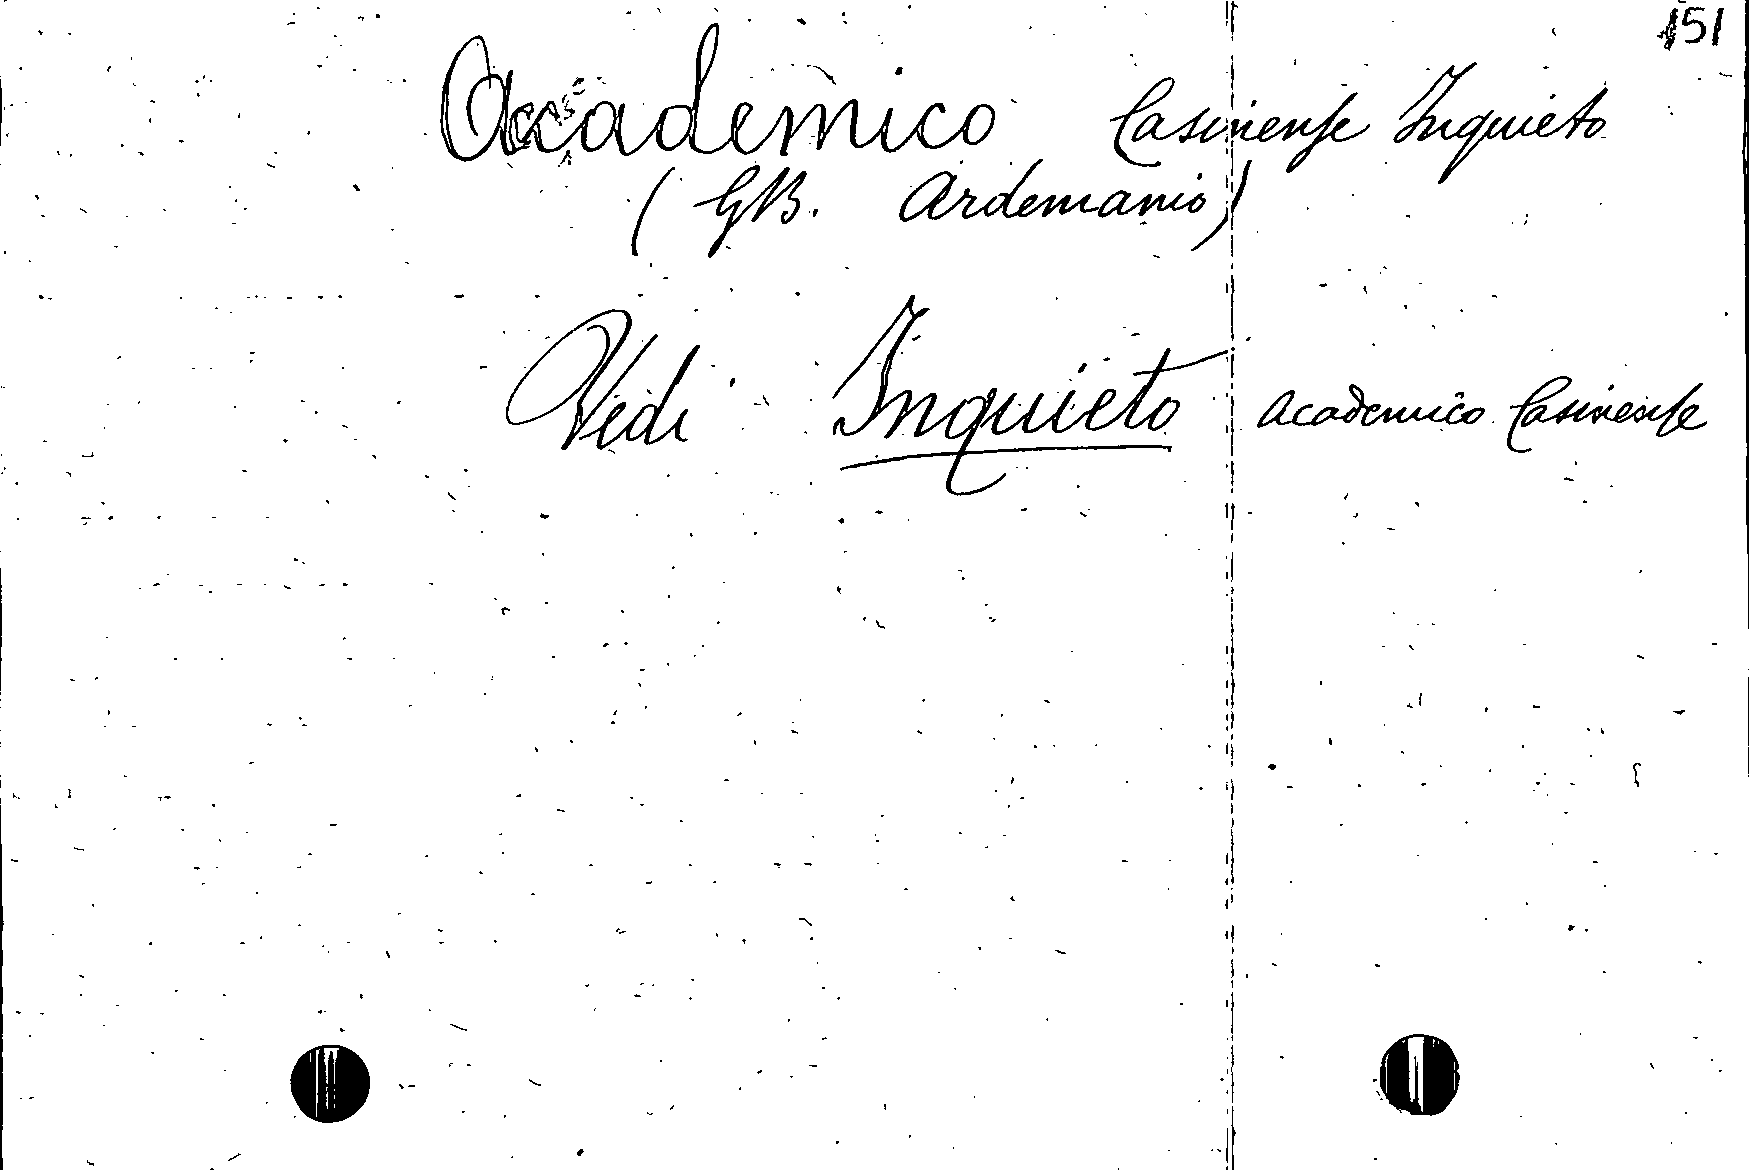 151
Accademico Casinense Inquieto
(GB. Ardemanio)
Vedi Inquieto Academico Casinense